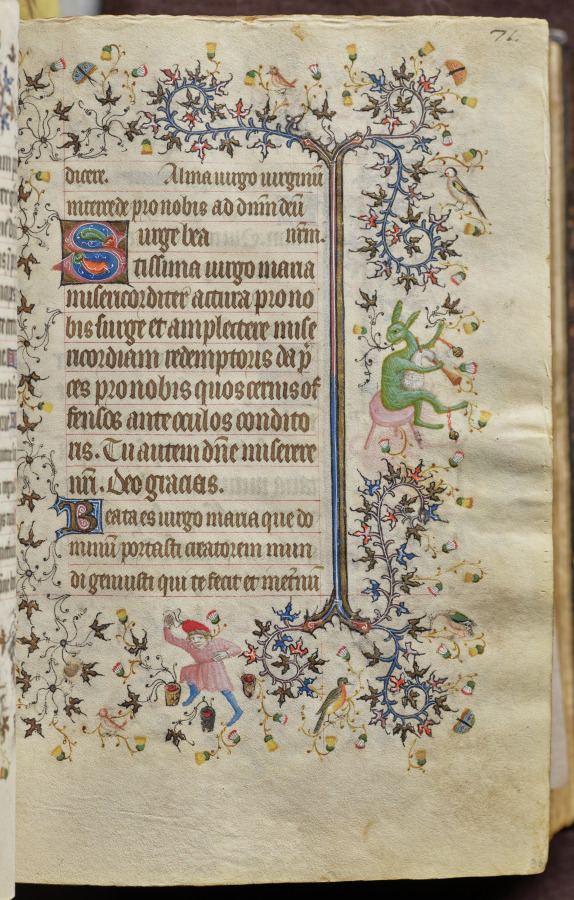 76.
dicere. Alma uirgo uirginū
intercede pro nobis ad dnm deū
Surge bea nrm.
tissima uirgo maria
misericorditer actura pro no
bis surge et amplectere mise
ricordiam redemptoris da p̄
ces pro nobis quos cernis of
fensos ante oculos condito
ris. Tu autem dn̄e miserere
nr̄i. Deo gracias.
Beata es uirgo maria que do
minū portasti creatorem mun
di genuisti qui te fecit et met̄nū